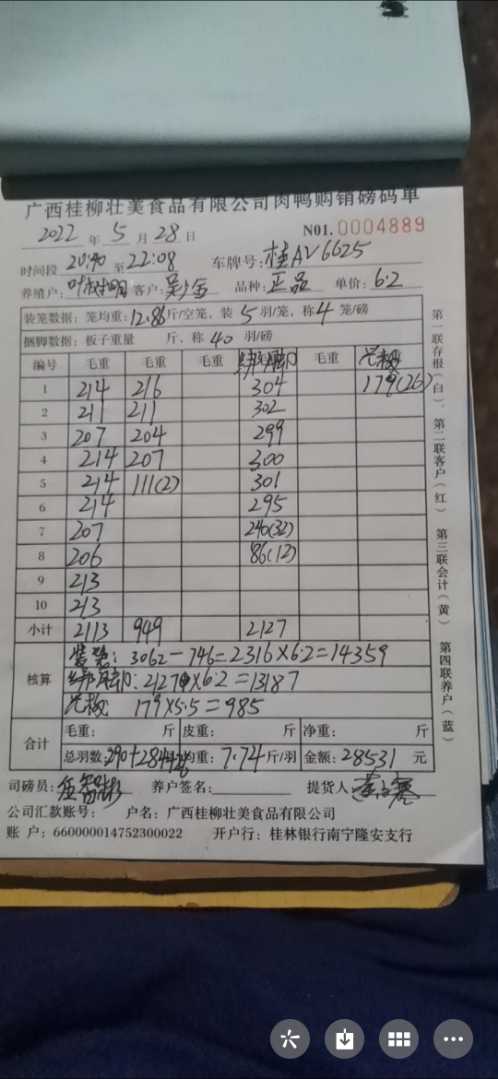 广西桂柳壮美食品有限公司肉鸭购销磅码单
2022 年 5 月 28 日 N01.0004889
时间段 20:40 至 22:08 车牌号: 桂AV6625
养殖户: 叶 客户: 品种: 正品 单价: 6.2
装笼数据: 笼均重: 12.86 斤/空笼, 装 5 羽/笼, 称 4 笼/磅
捆脚数据: 板子重量 斤, 称 40 羽/磅
编号 毛重 毛重 毛重 毛重
1 214 216 304 179(26)
2 211 211 302
3 207 204 299
4 214 207 300
5 214 111(2) 301
6 214 295
7 207 240(32)
8 206 86(12)
9 213
10 213
小计 2113 949 2127
核算
装笼: 3062-746=2316×6.2=14359
2127×6.2=13187
179×5.5=985
合计 毛重: 斤 皮重: 斤 净重: 斤
总羽数: 290+284 均重: 7.74 斤/羽 金额: 28531 元
司磅员: 养户签名: 提货人
公司汇款账号: 户名: 广西桂柳壮美食品有限公司
账 户: 660000014752300022 开户行: 桂林银行南宁隆安支行
第一联存根(白)、第二联客户(红) 第三联会计(黄) 第四联养户(蓝)